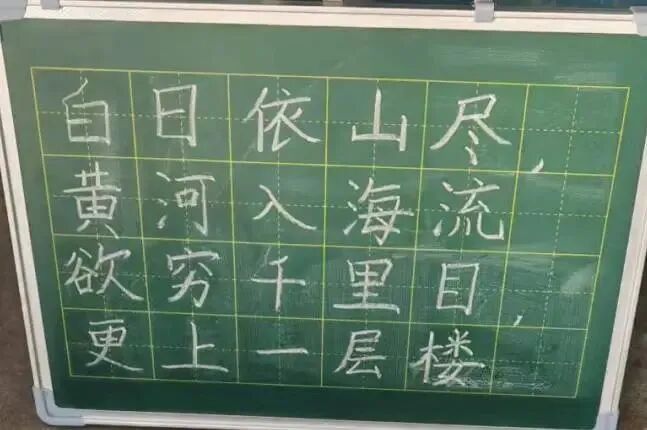 白日依山尽，
黄河入海流
欲穷千里目，
更上一层楼